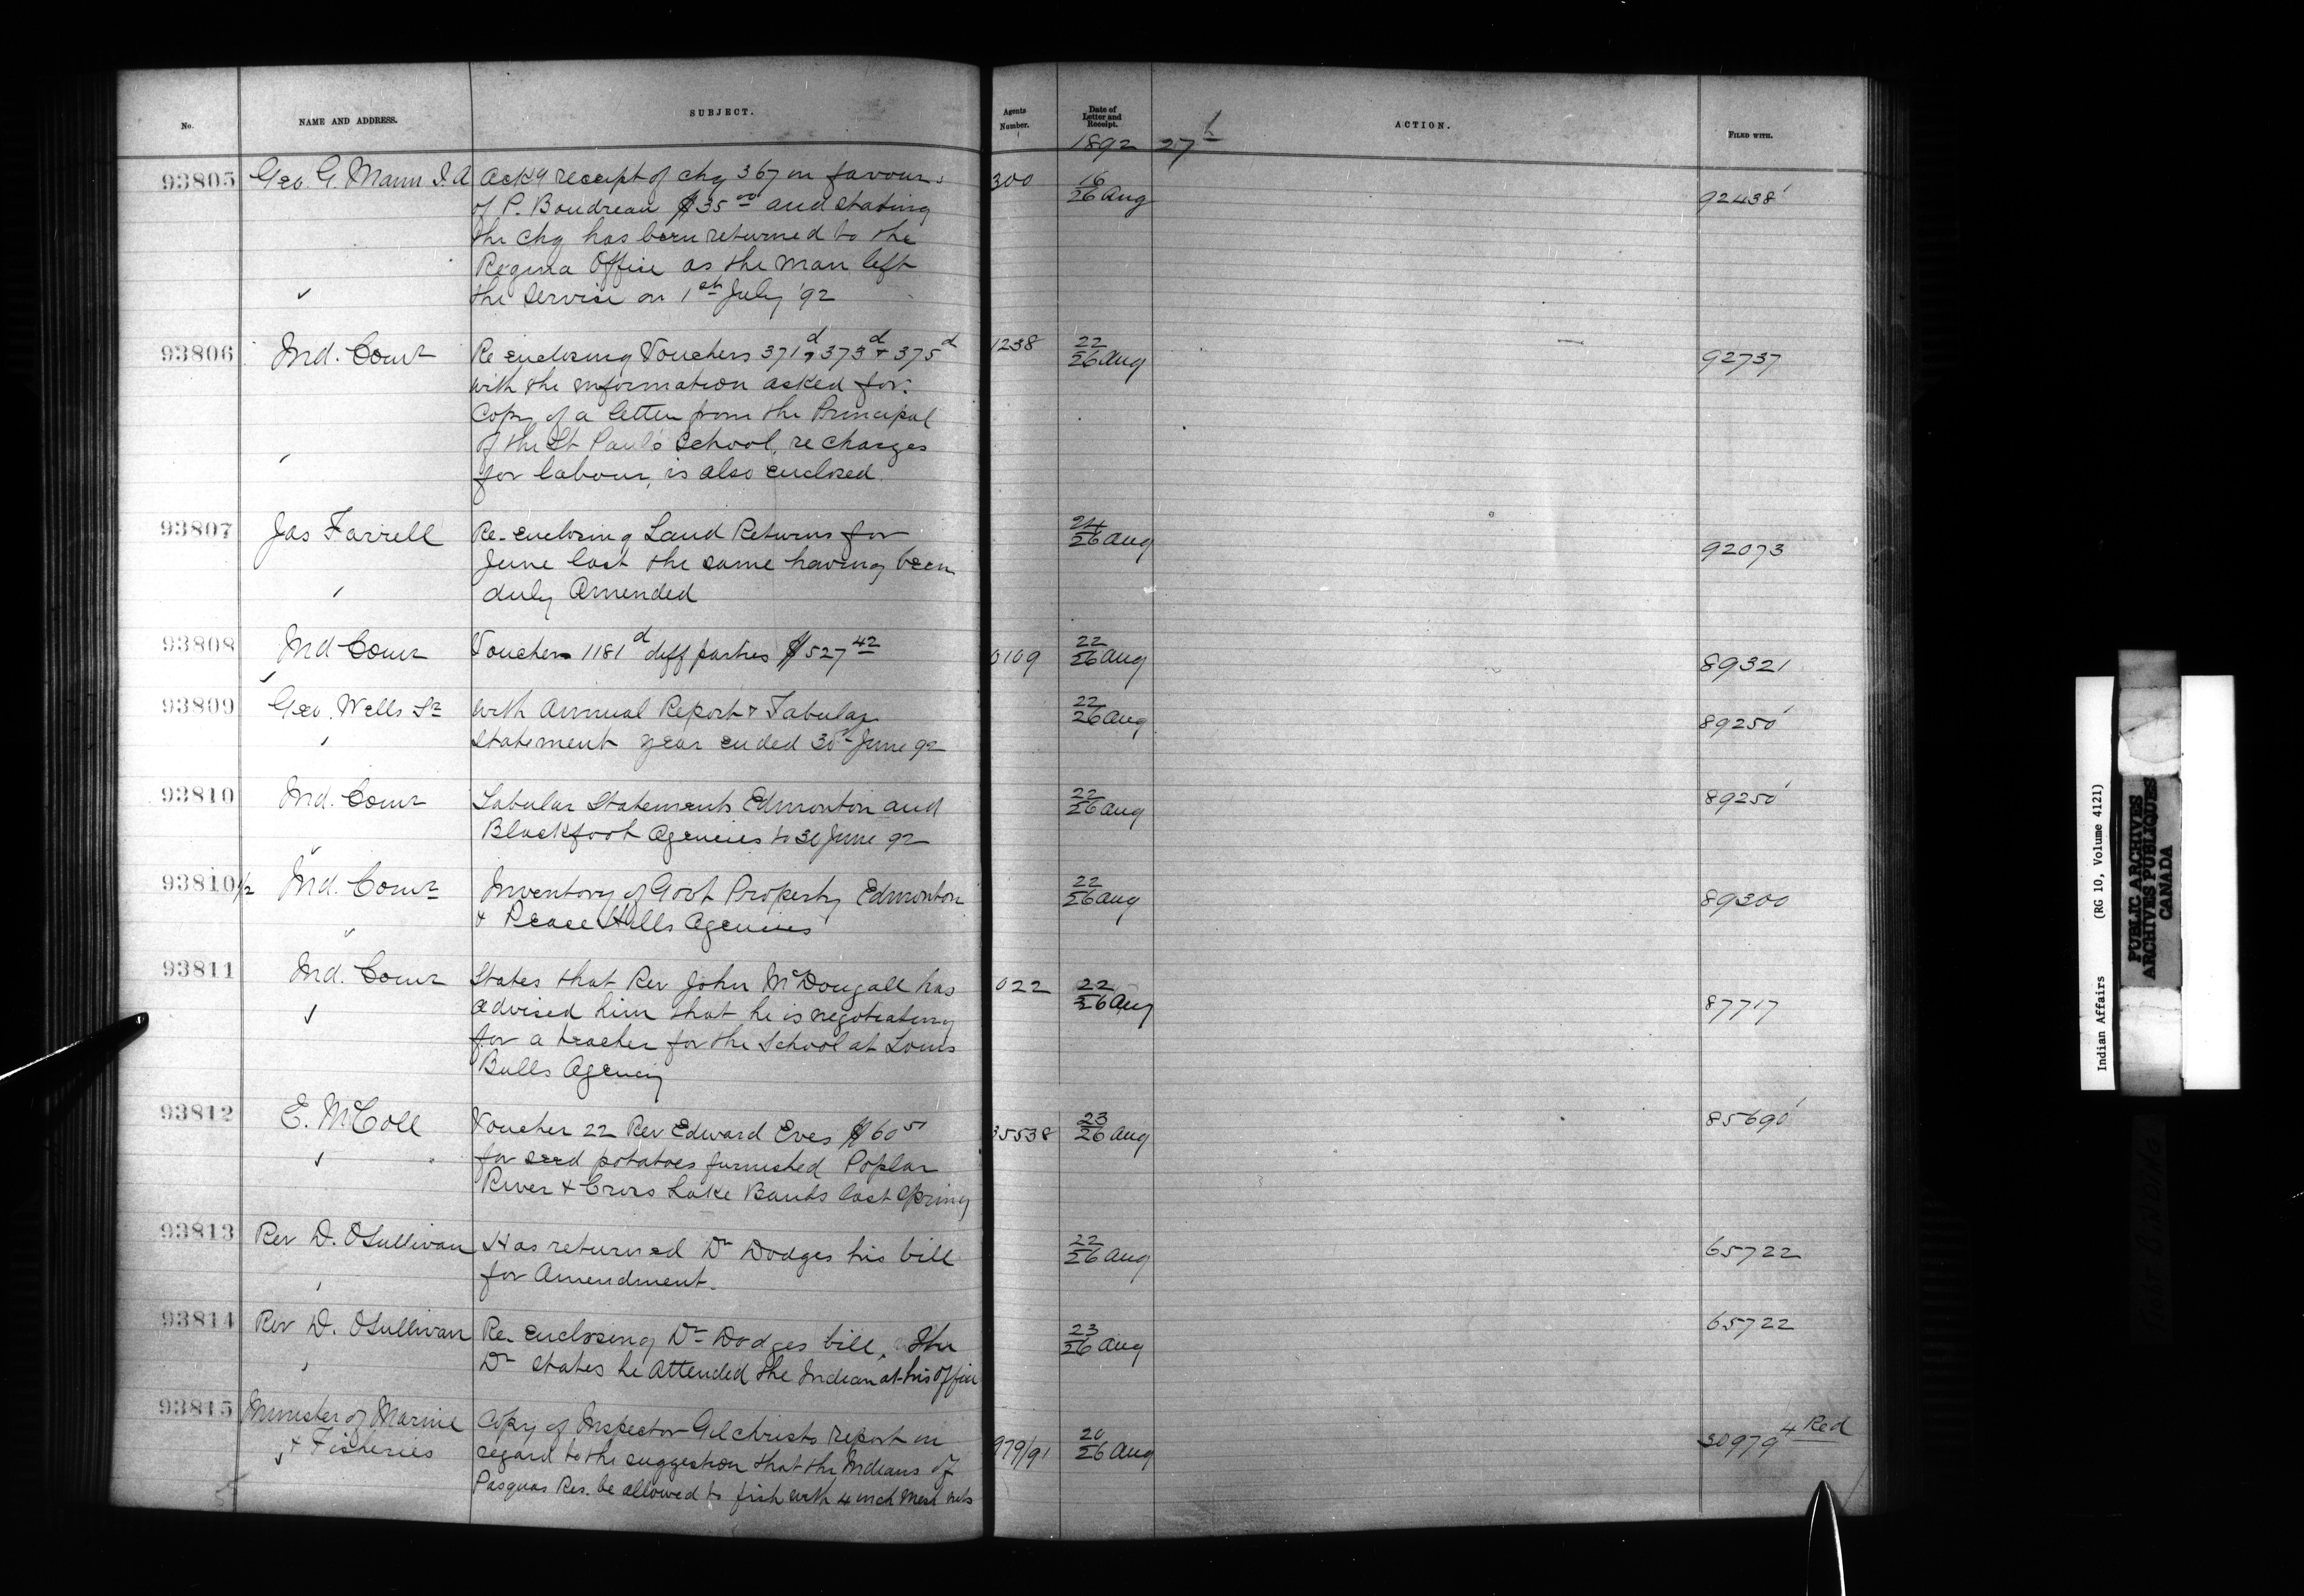 No. NAME AND ADDRESS. SUBJECT. Agents Number. Date of Letter and Receipt. ACTION. FILED WITH.
1892 27th
93805 Geo. G. Mann I.A Ackg receipt of chq 367 in favour 300 16/26 Aug 92438'
of P. Boudreau $35.00 and stating
the chq has been returned to the
Regina Office as the man left
the service on 1st July '92
93806 Ind. Comr Re enclosing Vouchers 371d, 373d & 375d 1238 22/26 Aug 92737
with the information asked for.
Copy of a letter from the Principal
of the St Paul's School, re charges
for labour, is also enclosed.
93807 Jas Farrell Re-enclosing Land Returns for 24/26 Aug 92073
June last the same having been
duly Amended
93808 Ind Comr Vouchers 1181d diff parties $527.42 0109 22/26 Aug 89321
93809 Geo. Wells Sr with Annual Report & Tabular 22/26 Aug 89250'
Statement year ended 30th June 92
93810 Ind. Comr Tabular Statements Edmonton and 22/26 Aug 89250'
Blackfoot Agencies to 30 June 92
93810 1/2 Ind. Comr Inventory of Govt Property Edmonton 22/26 Aug 89300
& Peace Hills Agencies
93811 Ind. Comr States that Rev John McDougall has 022 22/26 Aug 87717
advised him that he is negotiating
for a teacher for the School at Louis
Bulls Agency
93812 E. McColl Voucher 22 Rev Edward Eves $60.51 35538 23/26 Aug 85690'
for seed potatoes furnished Poplar
River & Cross Lake Bands last Spring
93813 Rev D. OSullivan Has returned Dr Dodges his bill 22/26 Aug 65722
for Amendment.
93814 Rev D. OSullivan Re-Enclosing Dr Dodges bill, The 23/26 Aug 65722
Dr states he Attended the Indian at his Office
93815 Minister of Marine Copy of Inspector Gilchrists report in 979/91 20/26 Aug 30979 4 Red
& Fisheries regard to the suggestion that the Indians of
Pasquas Res. be allowed to fish with 4 inch mesh nets
Indian Affairs (RG 10, Volume 4121)
PUBLIC ARCHIVES
ARCHIVES PUBLIQUES
CANADA